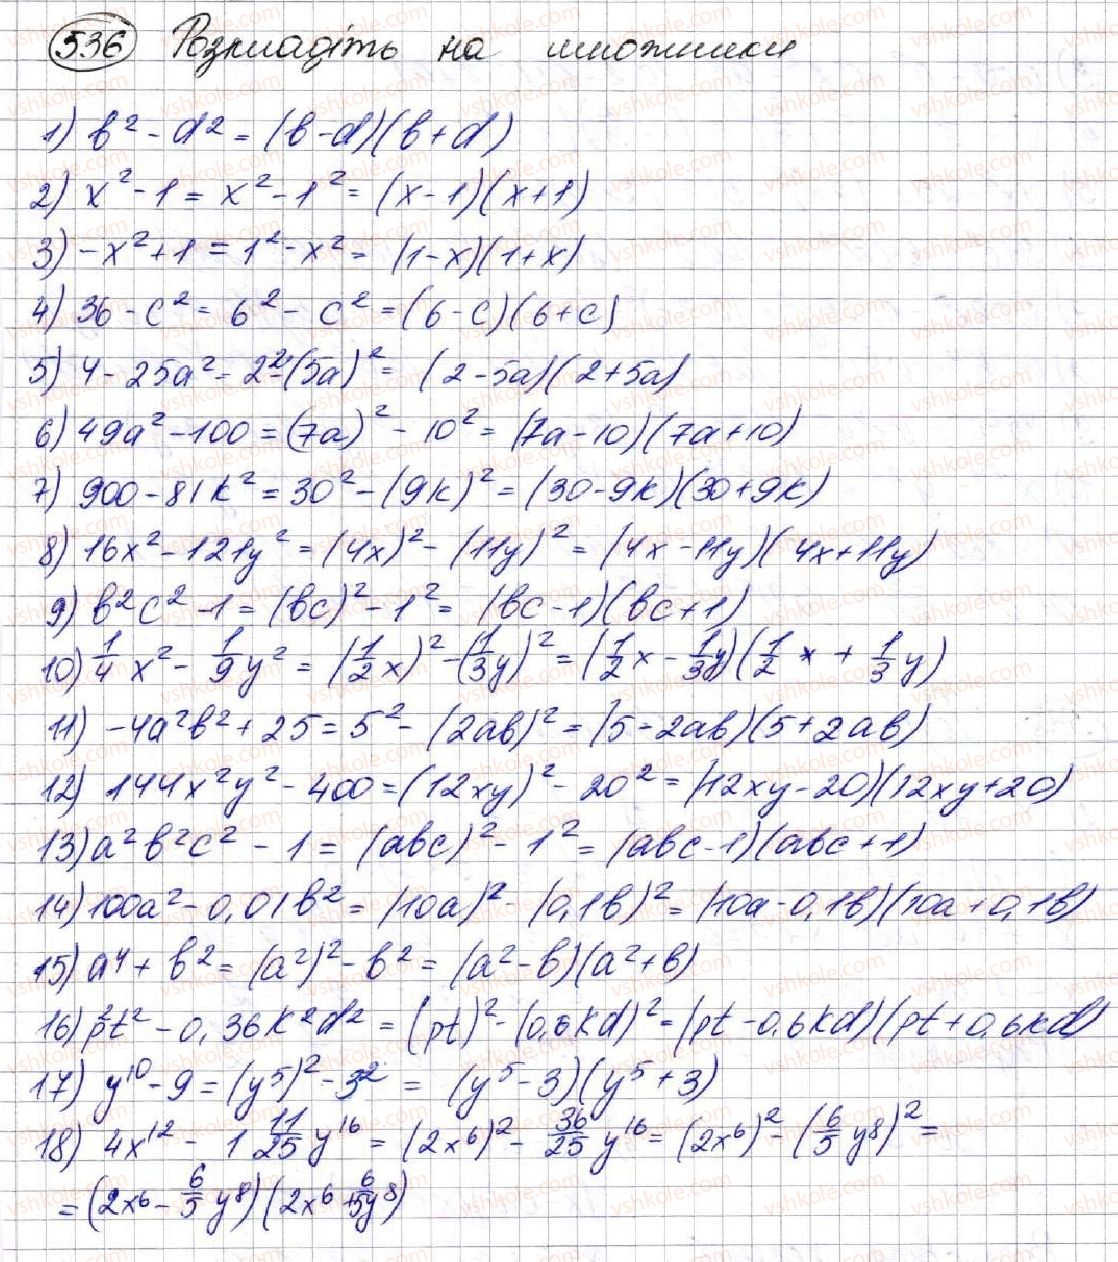 536 Розкладіть на множники
1) b² - d² = (b-d)(b+d)
2) x² - 1 = x² - 1² = (x-1)(x+1)
3) -x² + 1 = 1² - x² = (1-x)(1+x)
4) 36 - c² = 6² - c² = (6-c)(6+c)
5) 4 - 25a² = 2² - (5a)² = (2-5a)(2+5a)
6) 49a² - 100 = (7a)² - 10² = (7a-10)(7a+10)
7) 900 - 81k² = 30² - (9k)² = (30-9k)(30+9k)
8) 16x² - 121y² = (4x)² - (11y)² = (4x-11y)(4x+11y)
9) b²c² - 1 = (bc)² - 1² = (bc-1)(bc+1)
10) 1/4 x² - 1/9 y² = (1/2 x)² - (1/3 y)² = (1/2 x - 1/3 y)(1/2 x + 1/3 y)
11) -4a²b² + 25 = 5² - (2ab)² = (5-2ab)(5+2ab)
12) 144x²y² - 400 = (12xy)² - 20² = (12xy-20)(12xy+20)
13) a²b²c² - 1 = (abc)² - 1² = (abc-1)(abc+1)
14) 100a² - 0,01b² = (10a)² - (0,1b)² = (10a-0,1b)(10a+0,1b)
15) a⁴ + b² = (a²)² - b² = (a²-b)(a²+b)
16) p²t² - 0,36k²d² = (pt)² - (0,6kd)² = (pt-0,6kd)(pt+0,6kd)
17) y¹⁰ - 9 = (y⁵)² - 3² = (y⁵-3)(y⁵+3)
18) 4x¹² - 1 11/25 y¹⁶ = (2x⁶)² - 36/25 y¹⁶ = (2x⁶)² - (6/5 y⁸)² =
= (2x⁶ - 6/5 y⁸)(2x⁶ + 6/5 y⁸)